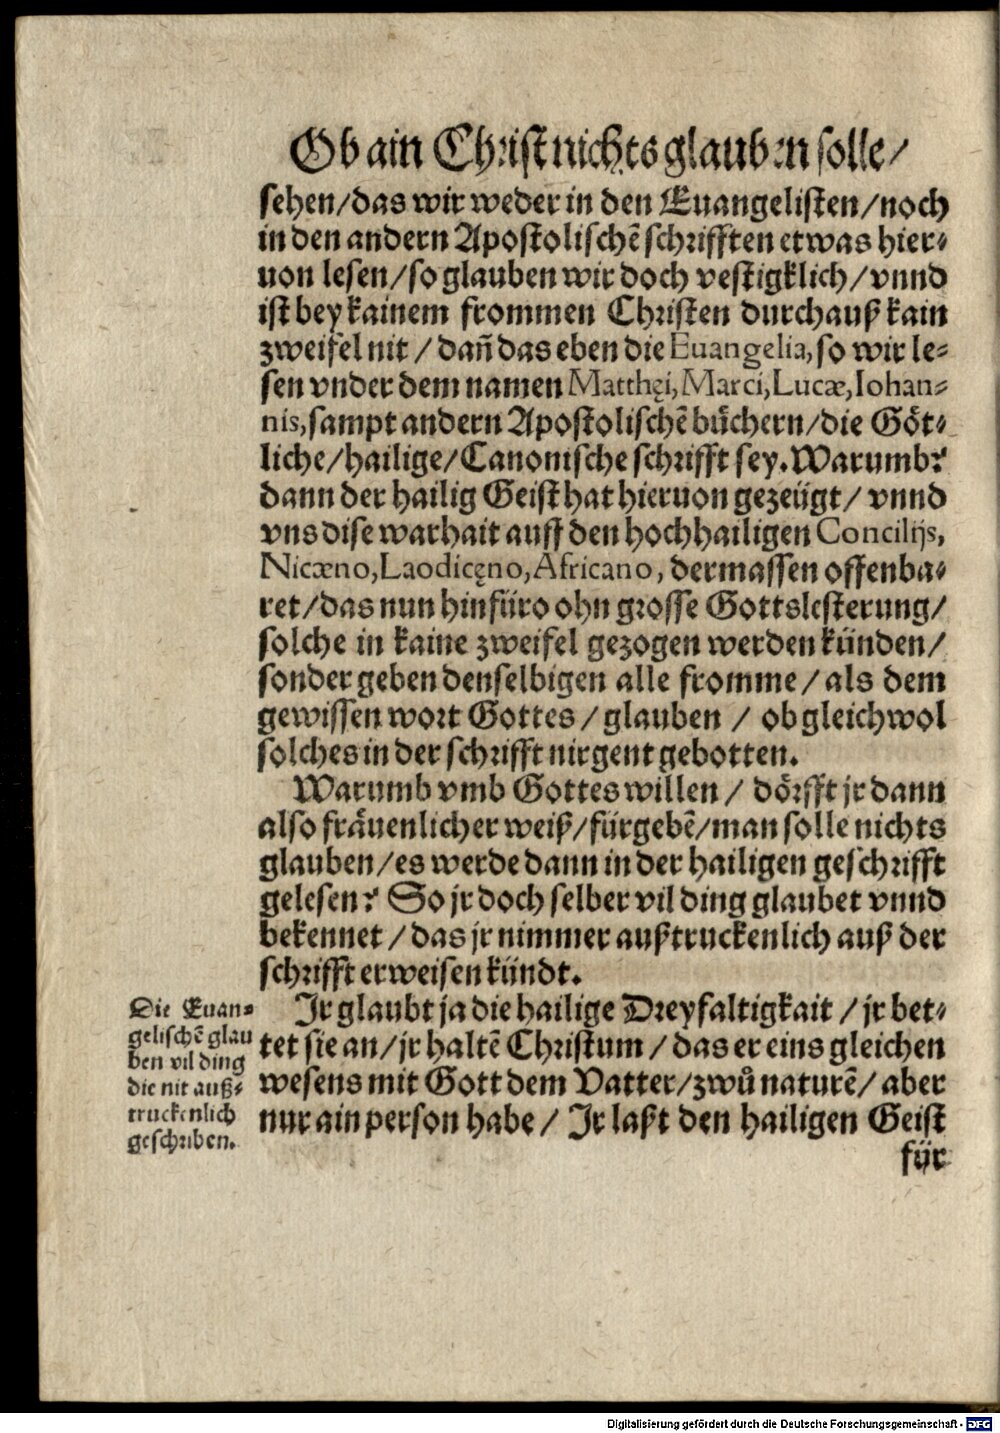 Ob ain Christ nichts glauben solle/
sehen/das wir weder in den Euangelisten/noch
in den andern Apostolischẽ schrifften etwas hier⸗
uon lesen/so glauben wir doch vestigklich/vnnd
ist bey kainem frommen Christen durchauß kain
zweifel nit/dañ das eben die Euangelia, so wir le⸗
sen vnder dem namen Matthęi, Marci, Lucæ, Iohan⸗
nis, sampt andern Apostolischẽ bůchern/die Göt⸗
liche/hailige/Canonische schrifft sey. Warumb?
dann der hailig Geist hat hieruon gezeügt/vnnd
vns dise warhait auff den hochhailigen Concilijs,
Nicæno, Laodicęno, Africano, dermassen offenba⸗
ret/das nun hinfüro ohn grosse Gottslesterung/
solche in kaine zweifel gezogen werden künden/
sonder geben denselbigen alle fromme/als dem
gewissen wort Gottes/glauben/ob gleichwol
solches in der schrifft nirgent gebotten.
Warumb vmb Gottes willen/dörfft jr dann
also fräuenlicher weiß/fürgebẽ/man solle nichts
glauben/es werde dann in der hailigen geschrifft
gelesen? So jr doch selber vil ding glaubet vnnd
bekennet/das jr nimmer außtruckenlich auß der
schrifft erweisen kündt.
Jr glaubt ja die hailige Dreyfaltigkait/jr bet⸗
tet sie an/jr haltẽ Christum/das er eins gleichen
wesens mit Gott dem Vatter/zwů naturẽ/aber
nur ain person habe/Jr laßt den hailigen Geist
für
Die Euan⸗
gelischẽ glau
ben vil ding
die nit auß⸗
truckenlich
geschriben.
Digitalisierung gefördert durch die Deutsche Forschungsgemeinschaft - DFG